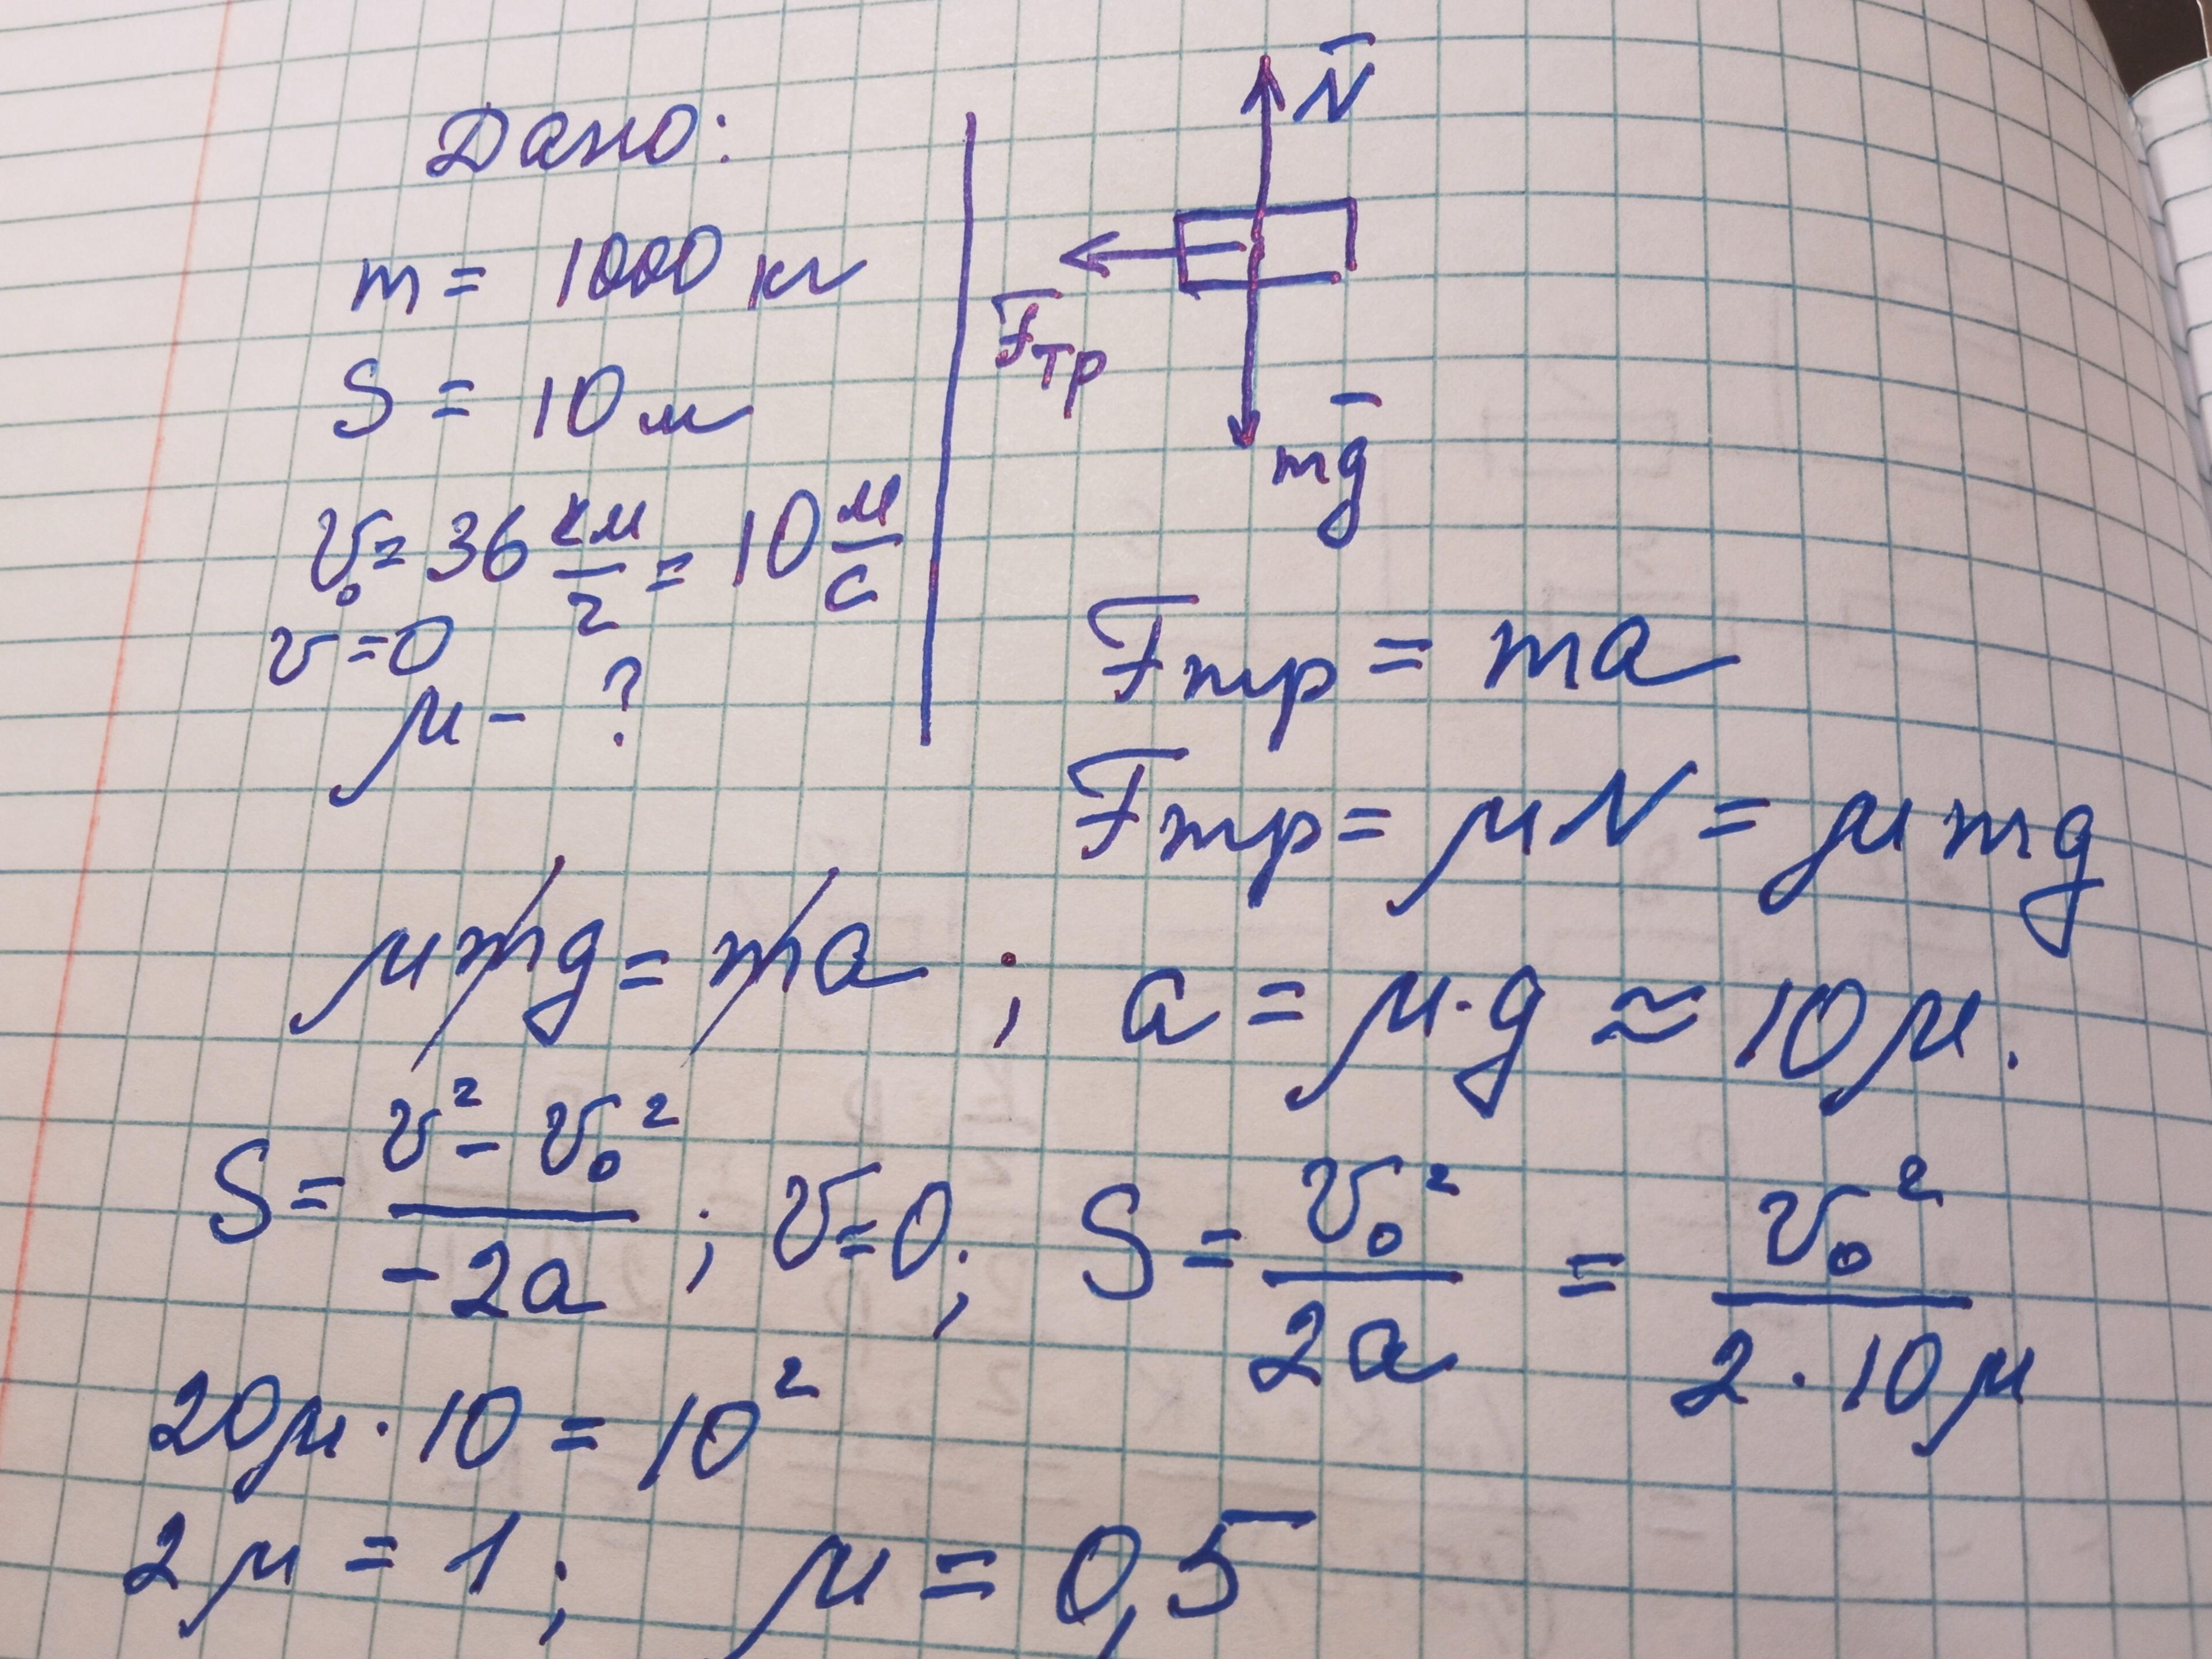 Дано:
m = 1000 кг
S = 10 м
v₀ = 36 км/г = 10 м/с
v = 0
μ - ?
N̅
F̅тр
mg̅
Fтр = ma
Fтр = μN = μmg
μmg = ma ; a = μ·g ≈ 10μ.
S = (v² - v₀²)/(-2a) ; v=0; S = v₀²/(2a) = v₀²/(2·10μ)
20μ·10 = 10²
2μ = 1; μ = 0,5